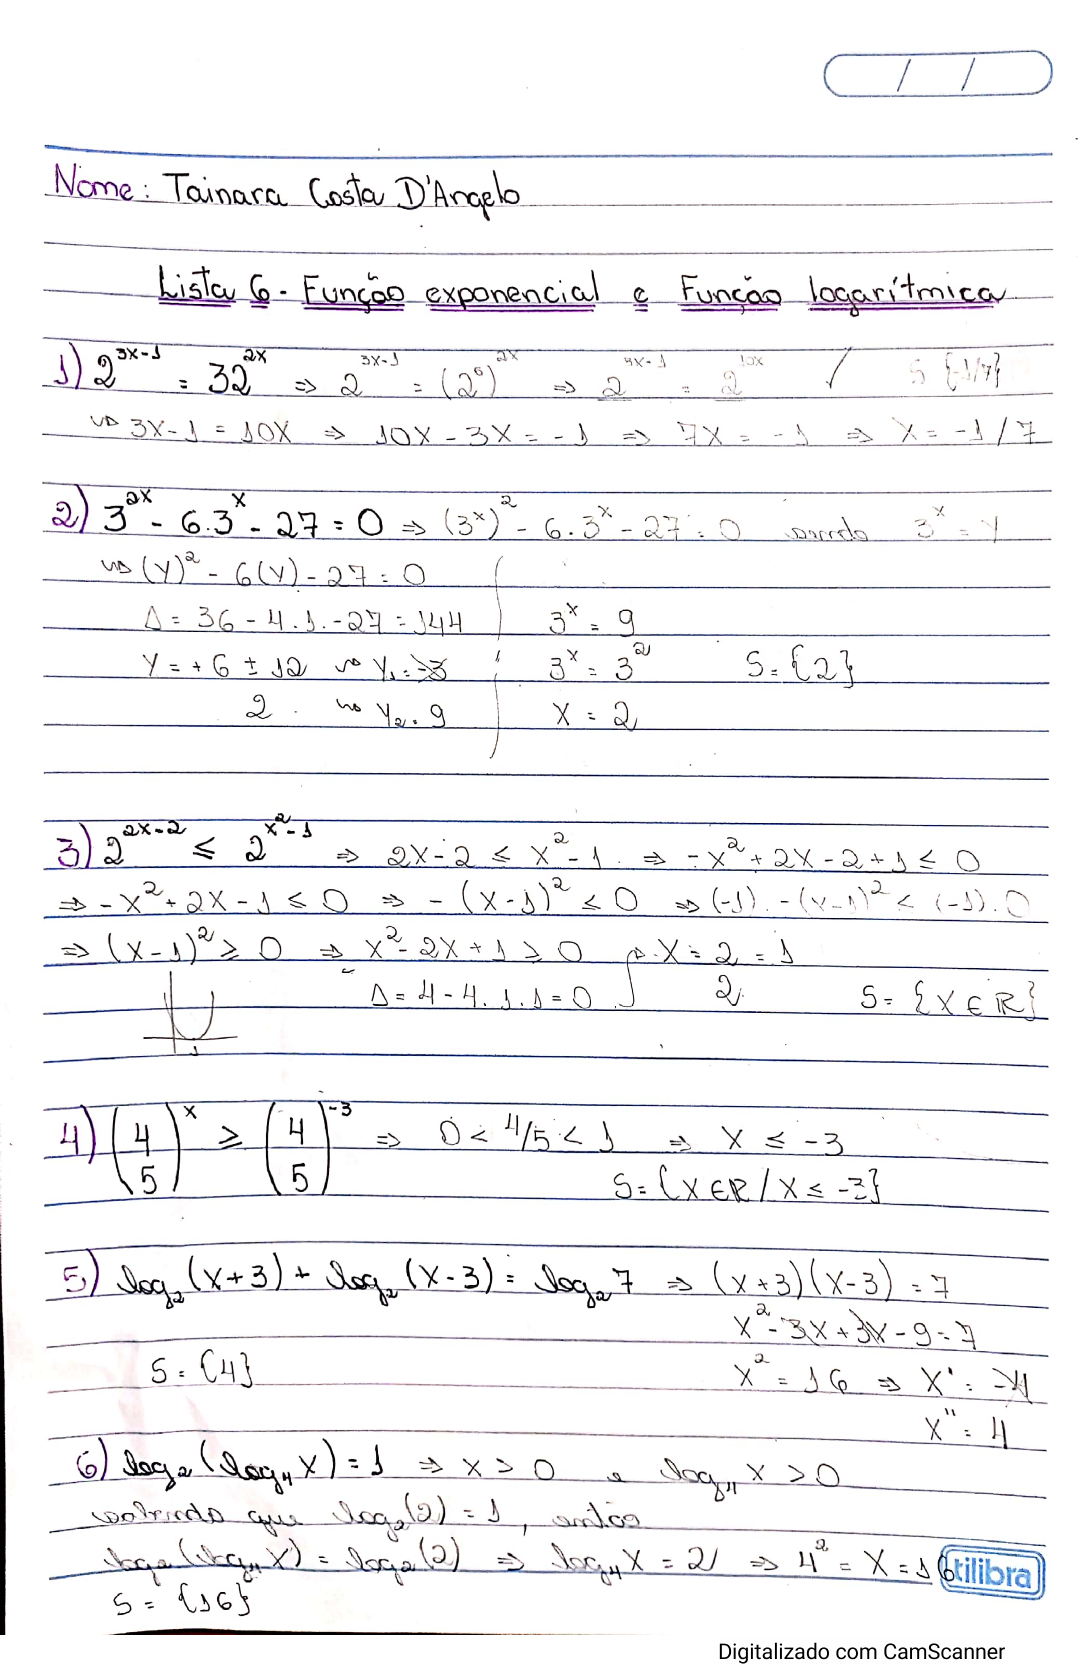 / /
Nome: Tainara Costa D'Angelo
Lista 6 - Função exponencial e Função logarítmica
1) 2^(3x-1) = 32^(2x) ⇒ 2^(3x-1) = (2^5)^(2x) ⇒ 2^(3x-1) = 2^(10x) / S {-1/7}
↝ 3x-1 = 10x ⇒ 10x - 3x = -1 ⇒ 7x = -1 ⇒ x = -1/7
2) 3^(2x) - 6.3^x - 27 = 0 ⇒ (3^x)^2 - 6.3^x - 27 = 0 sendo 3^x = y
↝ (y)^2 - 6(y) - 27 = 0
Δ = 36 - 4.1.-27 = 144 3^x = 9
y = +6 ± 12 ↝ y₁ = -3 3^x = 3^2 S = {2}
2 ↝ y₂ = 9 x = 2
3) 2^(2x-2) ≤ 2^(x^2-1) ⇒ 2x-2 ≤ x^2-1 ⇒ -x^2+2x-2+1 ≤ 0
⇒ -x^2+2x-1 ≤ 0 ⇒ -(x-1)^2 ≤ 0 ⇒ (-1).-(x-1)^2 ≤ (-1).0
⇒ (x-1)^2 ≥ 0 ⇒ x^2-2x+1 ≥ 0 x = 2 = 1
Δ = 4-4.1.1 = 0 2 S = {x ∈ ℝ}
1
4) (4/5)^x ≥ (4/5)^-3 ⇒ 0 < 4/5 < 1 ⇒ x ≤ -3
S = {x ∈ ℝ / x ≤ -3}
5) log₂(x+3) + log₂(x-3) = log₂7 ⇒ (x+3)(x-3) = 7
x^2 - 3x + 3x - 9 = 7
S = {4} x^2 = 16 ⇒ x' = -4
x'' = 4
6) log₂(log₄x) = 1 ⇒ x > 0 e log₄x > 0
sabendo que log₂(2) = 1, então
log₂(log₄x) = log₂(2) ⇒ log₄x = 2 ⇒ 4^2 = x = 16 tilibra
S = {16}
Digitalizado com CamScanner